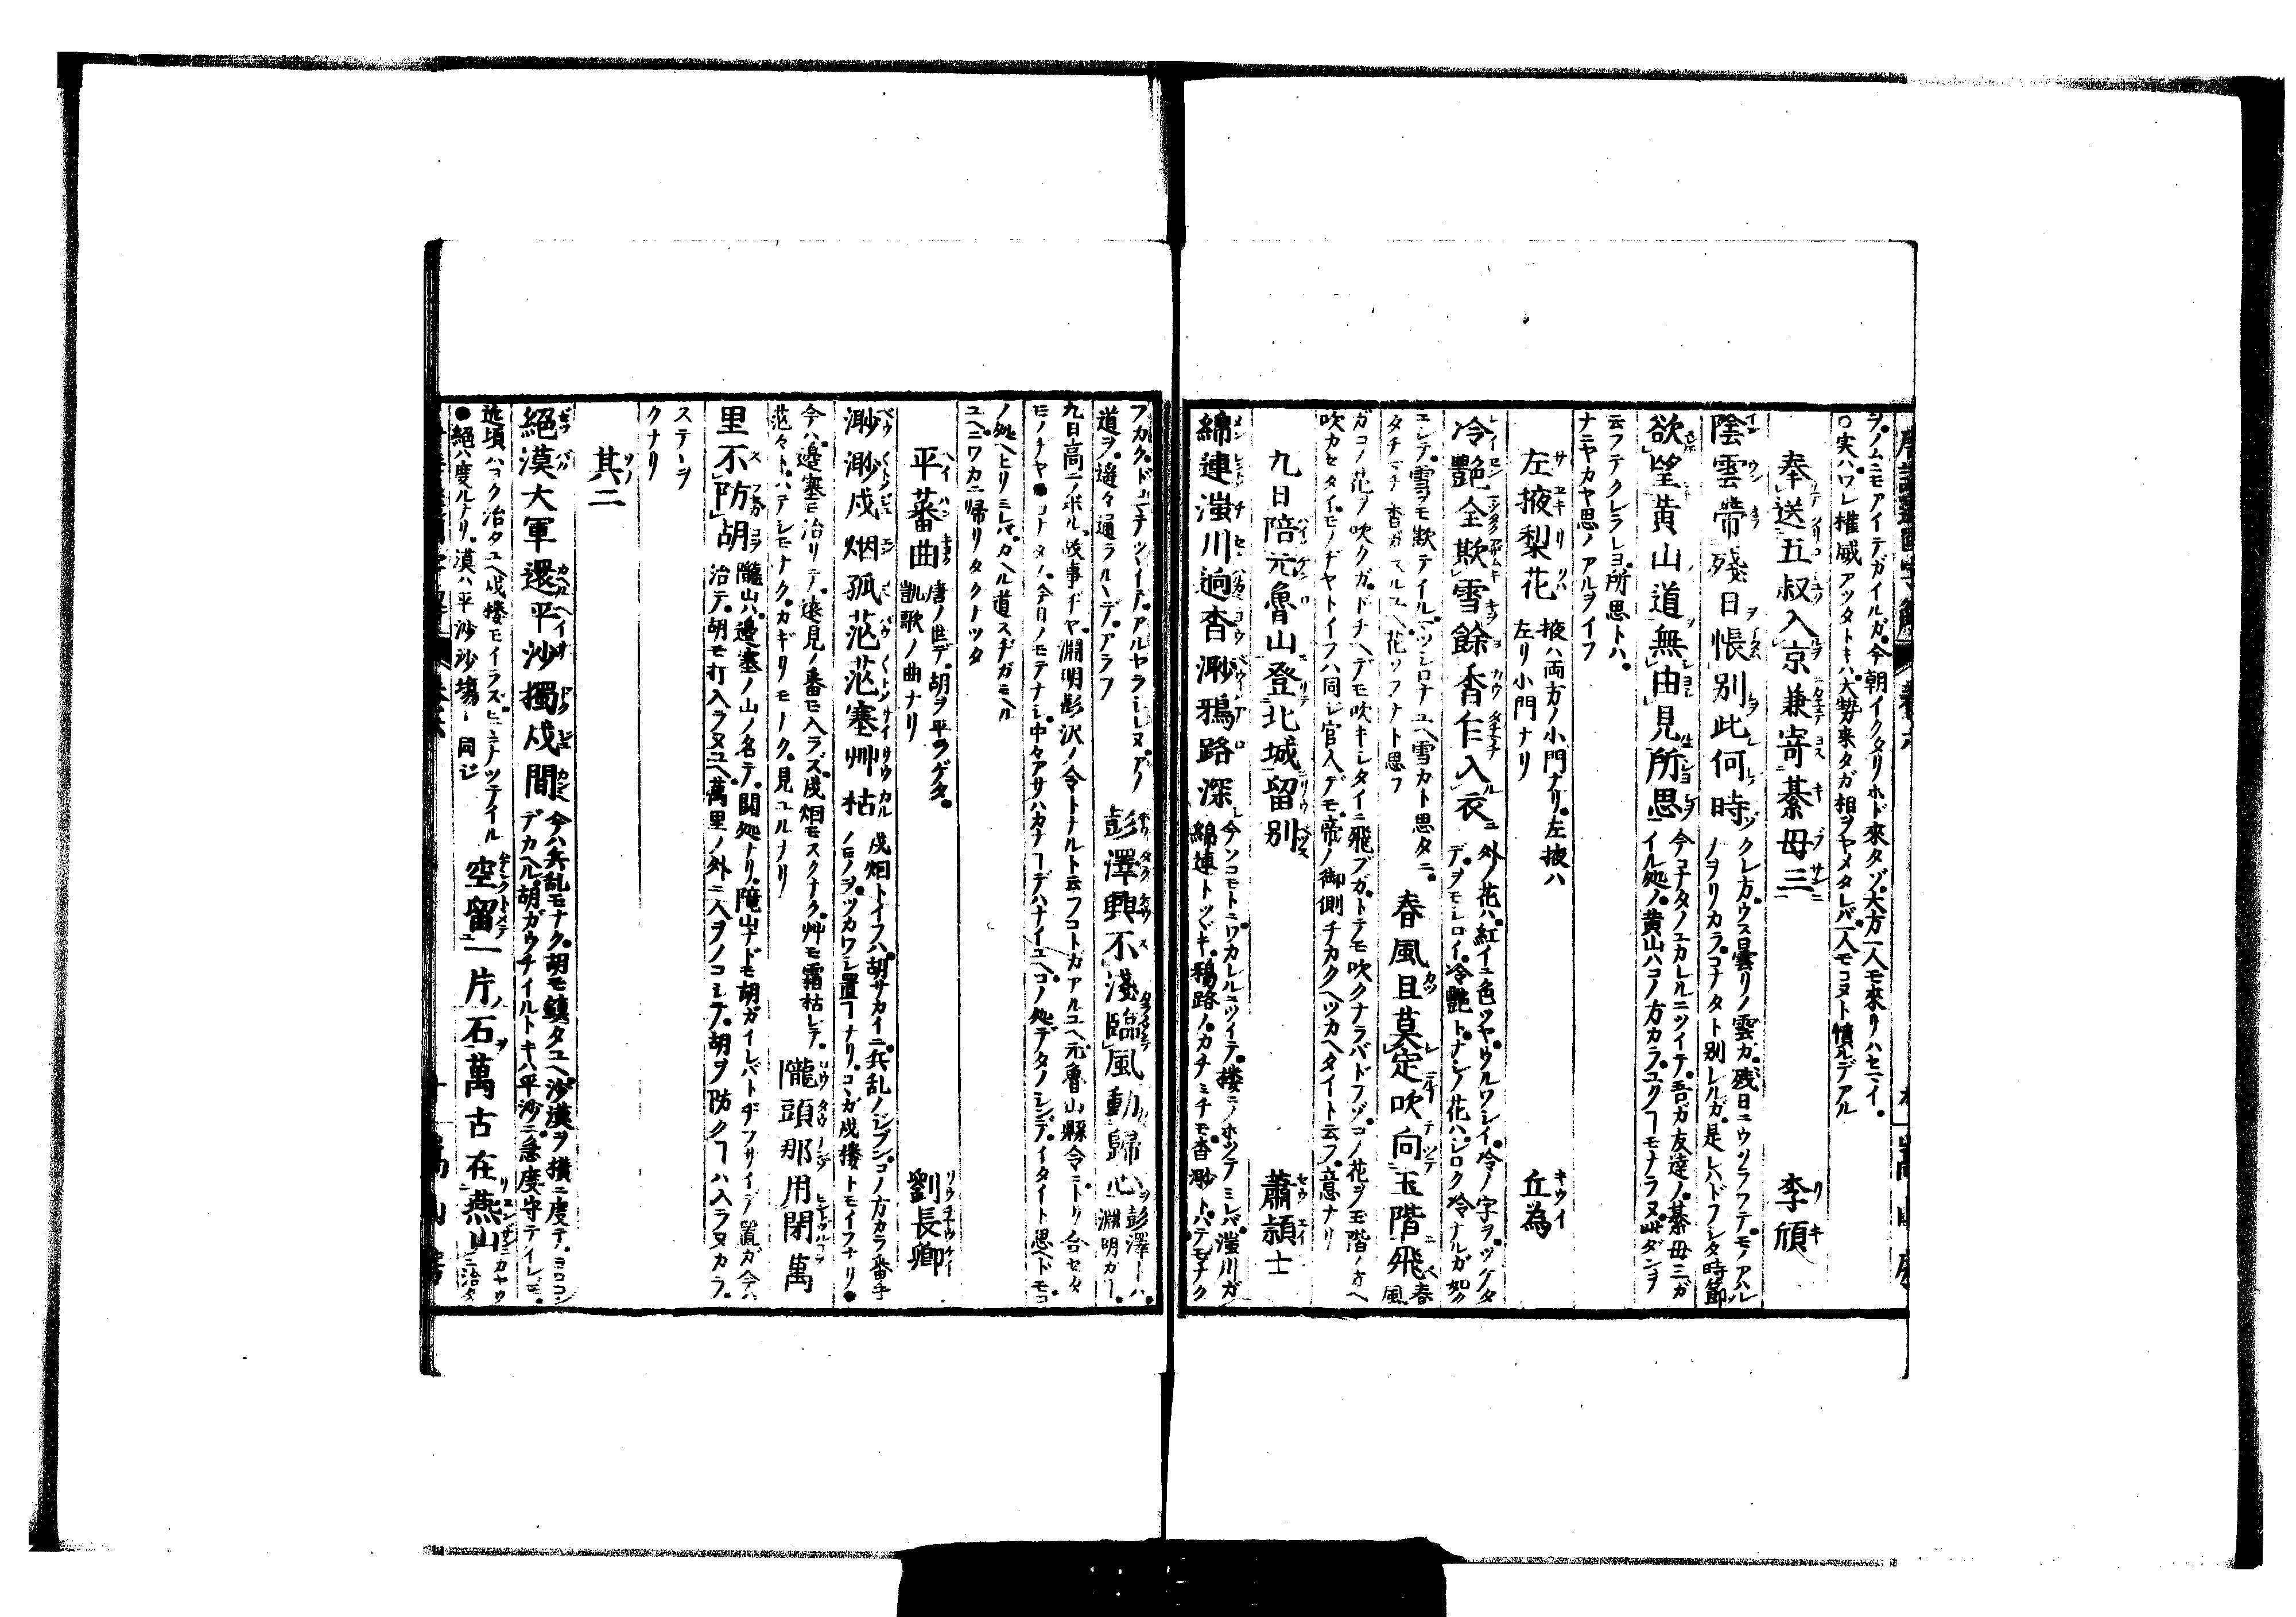 ヲノムニモアイテガイルガ今朝イクタリホド來タゾ大方一人モ來リハセマイ
○実ハワレ權威アツタトキハ大勢来タガ相ヲヤメタレバ一人モコヌト憤ルデアル
奉送五叔入京兼寄綦毋三 李頎
陰雲帶殘日悵別此何時
クレ方ウス曇リノ雲カ残日ニウツラフテモノアハレ
ノヲリカラコナタト別レルガ是レハドフシタ時節
欲望黄山道無由見所思
今コナタノユカレルニツイテ吾ガ友達ノ綦毋三ガ
イル処ノ黄山ハコノ方カラユクヿモナラヌ
云フテクレラレヨ所思トハ
ナニヤカヤ思ノアルヲイフ
左掖梨花 丘為
掖ハ両方ノ小門ナリ左掖ハ
左リ小門ナリ
冷艶全欺雪餘香乍入衣
外ノ花ハ紅イニ色ツヤウルワシイ冷ノ字ヲツケタ
デヲモシロイ冷艶トナシノ花ハシロク冷ナルガ如ク
ミシテ雪ヲモ欺テイルマツシロナユヘ雪カト思タニ
タチマチ香ガスルユヘ花ソフナト思フ
春風且莫定吹向玉階飛
春風
ガコノ花ヲ吹クガドチヘデモ吹キシタイニ飛ブガトテモ吹クナラバドフゾコノ花ヲ玉階ノ方ヘ
吹カセタイモノヂヤトイフハ同シ官人デモ帝ノ御側チカクヘツカヘタイト云フ意ナリ
九日陪元魯山登北城留別 蕭頴士
綿連滍川逈杳渺鴉路深
今ソコモトニワカレルニツイテ楼ニノホツテミレバ滍川ガ
綿連トツヾキ鴉路ノカチミチモ杳渺トハテモナク
フカクドコマテツヾイテアルヤラシレヌアノ
道ヲ遥々通ラルヽデアラフ
彭澤興不淺臨風動歸心
彭澤ーハ
淵明ガー
九日高ニノボル故事ヂヤ淵明彭沢ノ令トナルト云フコトカアルユヘ元魯山縣令ニトリ合セタ
モノヂヤ●コナタノ今日ノモテナシ中々アサハカナヿデハナイユヘコノ処デタノシンデイタイト思ヘドモコ
ノ処ヘヒリミレバカヘル道スヂガモヘル
ユヘニワカニ帰リタクナツタ
平蕃曲 劉長卿
唐ノ世デ胡ヲ平ラゲタ
凱歌ノ曲ナリ
渺渺戍烟孤茫茫塞艸枯
戍烟トイフハ胡サカイニ兵乱ノジブンコノ方カラ番手
ノモノヲツカワシ置ヿナリコヽガ戍楼トモイフナリ●
今ハ邉塞モ治リテ遠見ノ番モ入ラズ戍烟モスクナク艸モ霜枯レテ
茫々トハテシモナクカギリモナク見ユルナリ
隴頭那用閉萬
里不防胡
隴山ハ邉塞ノ山ノ名テ関処ナリ隴山ナドモ胡ガイレバトヂフサイデ置ガ今ハ
治テ胡モ打入ラヌユヘ萬里ノ外ニ人ヲノコシテ胡ヲ防クヿハ入ラヌカラ
ステヽヲ
クナリ
其二
絕漠大軍還平沙獨戍間
今ハ兵乱モナク胡モ鎮タユヘ沙漠ヲ横ニ度テヨロコン
デカヘル胡ガウチイルトキハ平沙ニ急度守テイレモ
近頃ハヨク冶タユヘ戍楼モイラズヒマニナツテイル
●絕ハ度ルナリ漠ハ平沙沙塲ニ同ジ
空留一片石萬古在燕山